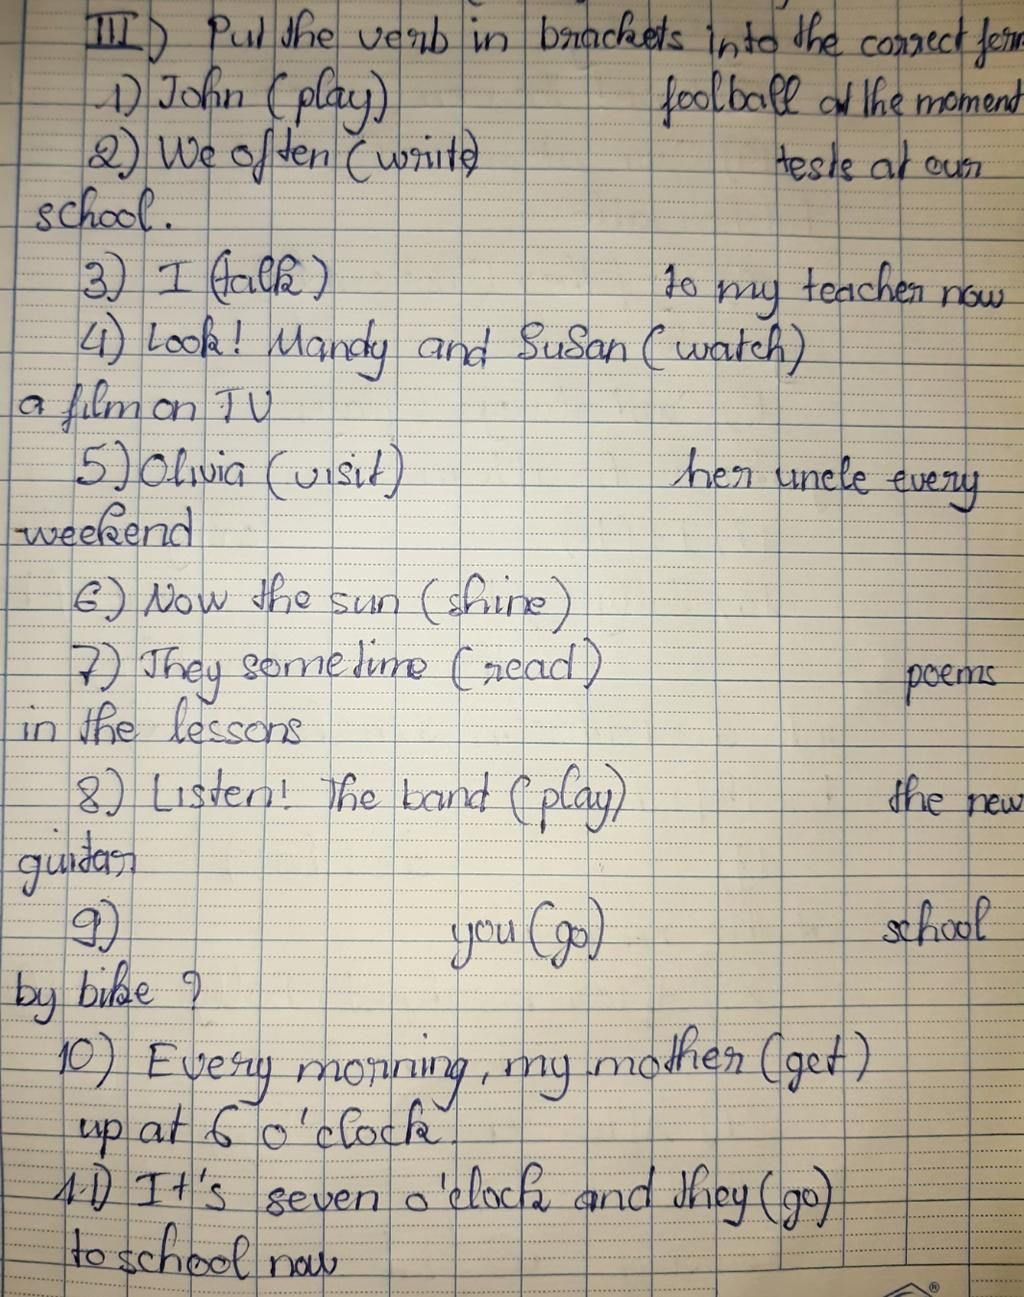 III) Put the verb in brackets into the correct form
1) John (play) football at the moment
2) We often (write) tests at our
school.
3) I (talk) to my teacher now
4) Look! Mandy and Susan (watch)
a film on TV
5) Olivia (visit) her uncle every
weekend
6) Now the sun (shine)
7) They sometime (read) poems
in the lessons
8) Listen! The band (play) the new
guitar
9) you (go) school
by bike ?
10) Every morning, my mother (get)
up at 6 o'clock.
11) It's seven o'clock and they (go)
to school now
®